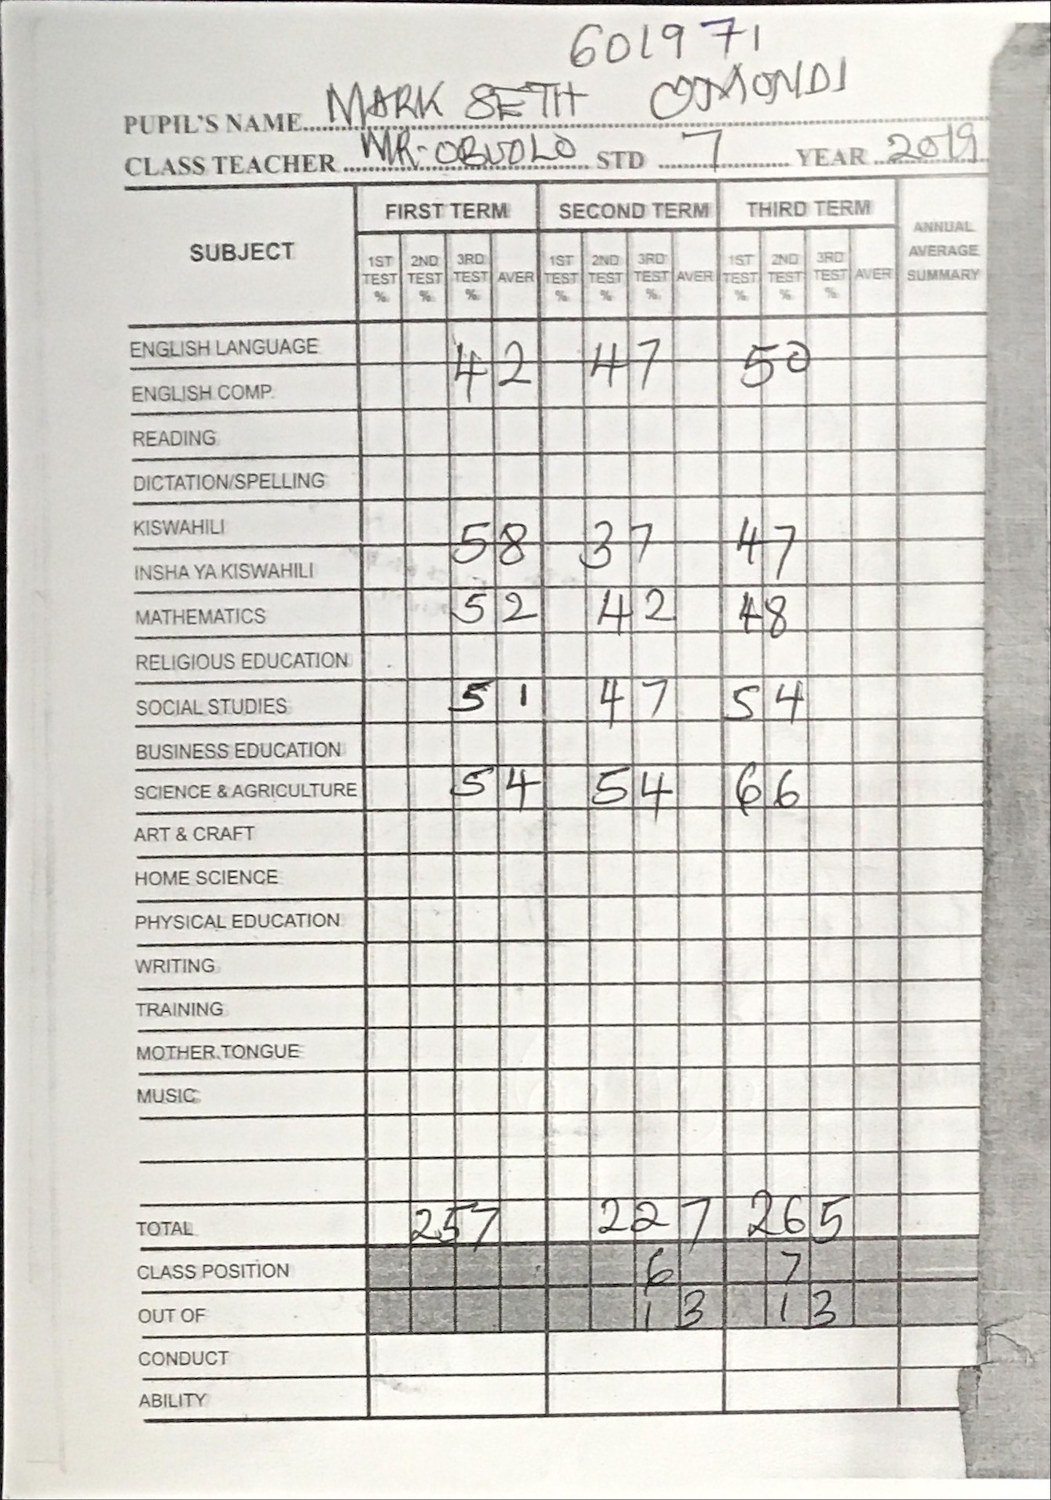 601971
PUPIL'S NAME MARK SETH OMONDI
CLASS TEACHER MR. OBUOLO STD 7 YEAR 2019
SUBJECT FIRST TERM SECOND TERM THIRD TERM ANNUAL AVERAGE SUMMARY
1ST TEST % 2ND TEST % 3RD TEST % AVER 1ST TEST % 2ND TEST % 3RD TEST % AVER 1ST TEST % 2ND TEST % 3RD TEST % AVER
ENGLISH LANGUAGE 42 47 50
ENGLISH COMP.
READING
DICTATION/SPELLING
KISWAHILI 58 37 47
INSHA YA KISWAHILI
MATHEMATICS 52 42 48
RELIGIOUS EDUCATION
SOCIAL STUDIES 51 47 54
BUSINESS EDUCATION
SCIENCE & AGRICULTURE 54 54 66
ART & CRAFT
HOME SCIENCE
PHYSICAL EDUCATION
WRITING
TRAINING
MOTHER TONGUE
MUSIC
TOTAL 257 227 265
CLASS POSITION 6 7
OUT OF 13 13
CONDUCT
ABILITY